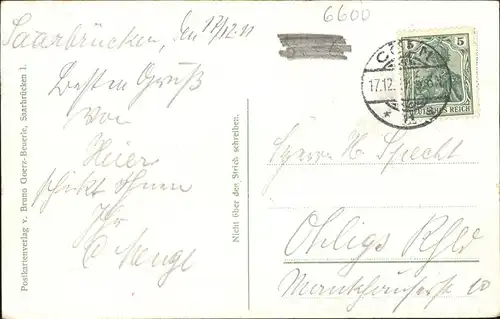 6600
Saarbrücken, den 17/12.11
Besten Gruß
von
Hier
schickt Ihnen
Ihr
C Menge
Postkartenverlag v. Bruno Goerz-Beuerle, Saarbrücken I.
Nicht über den Strich schreiben.
5
17.12.
DEUTSCHES REICH
Herrn H. Specht
Ohligs Rhld
10